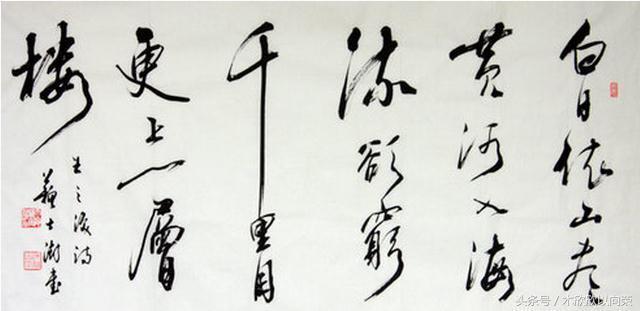 白日依山尽
黄河入海
流欲窮
千里目
更上一層
楼
王之涣诗
蘇士澍書
头条号 / 木欣欣以向荣